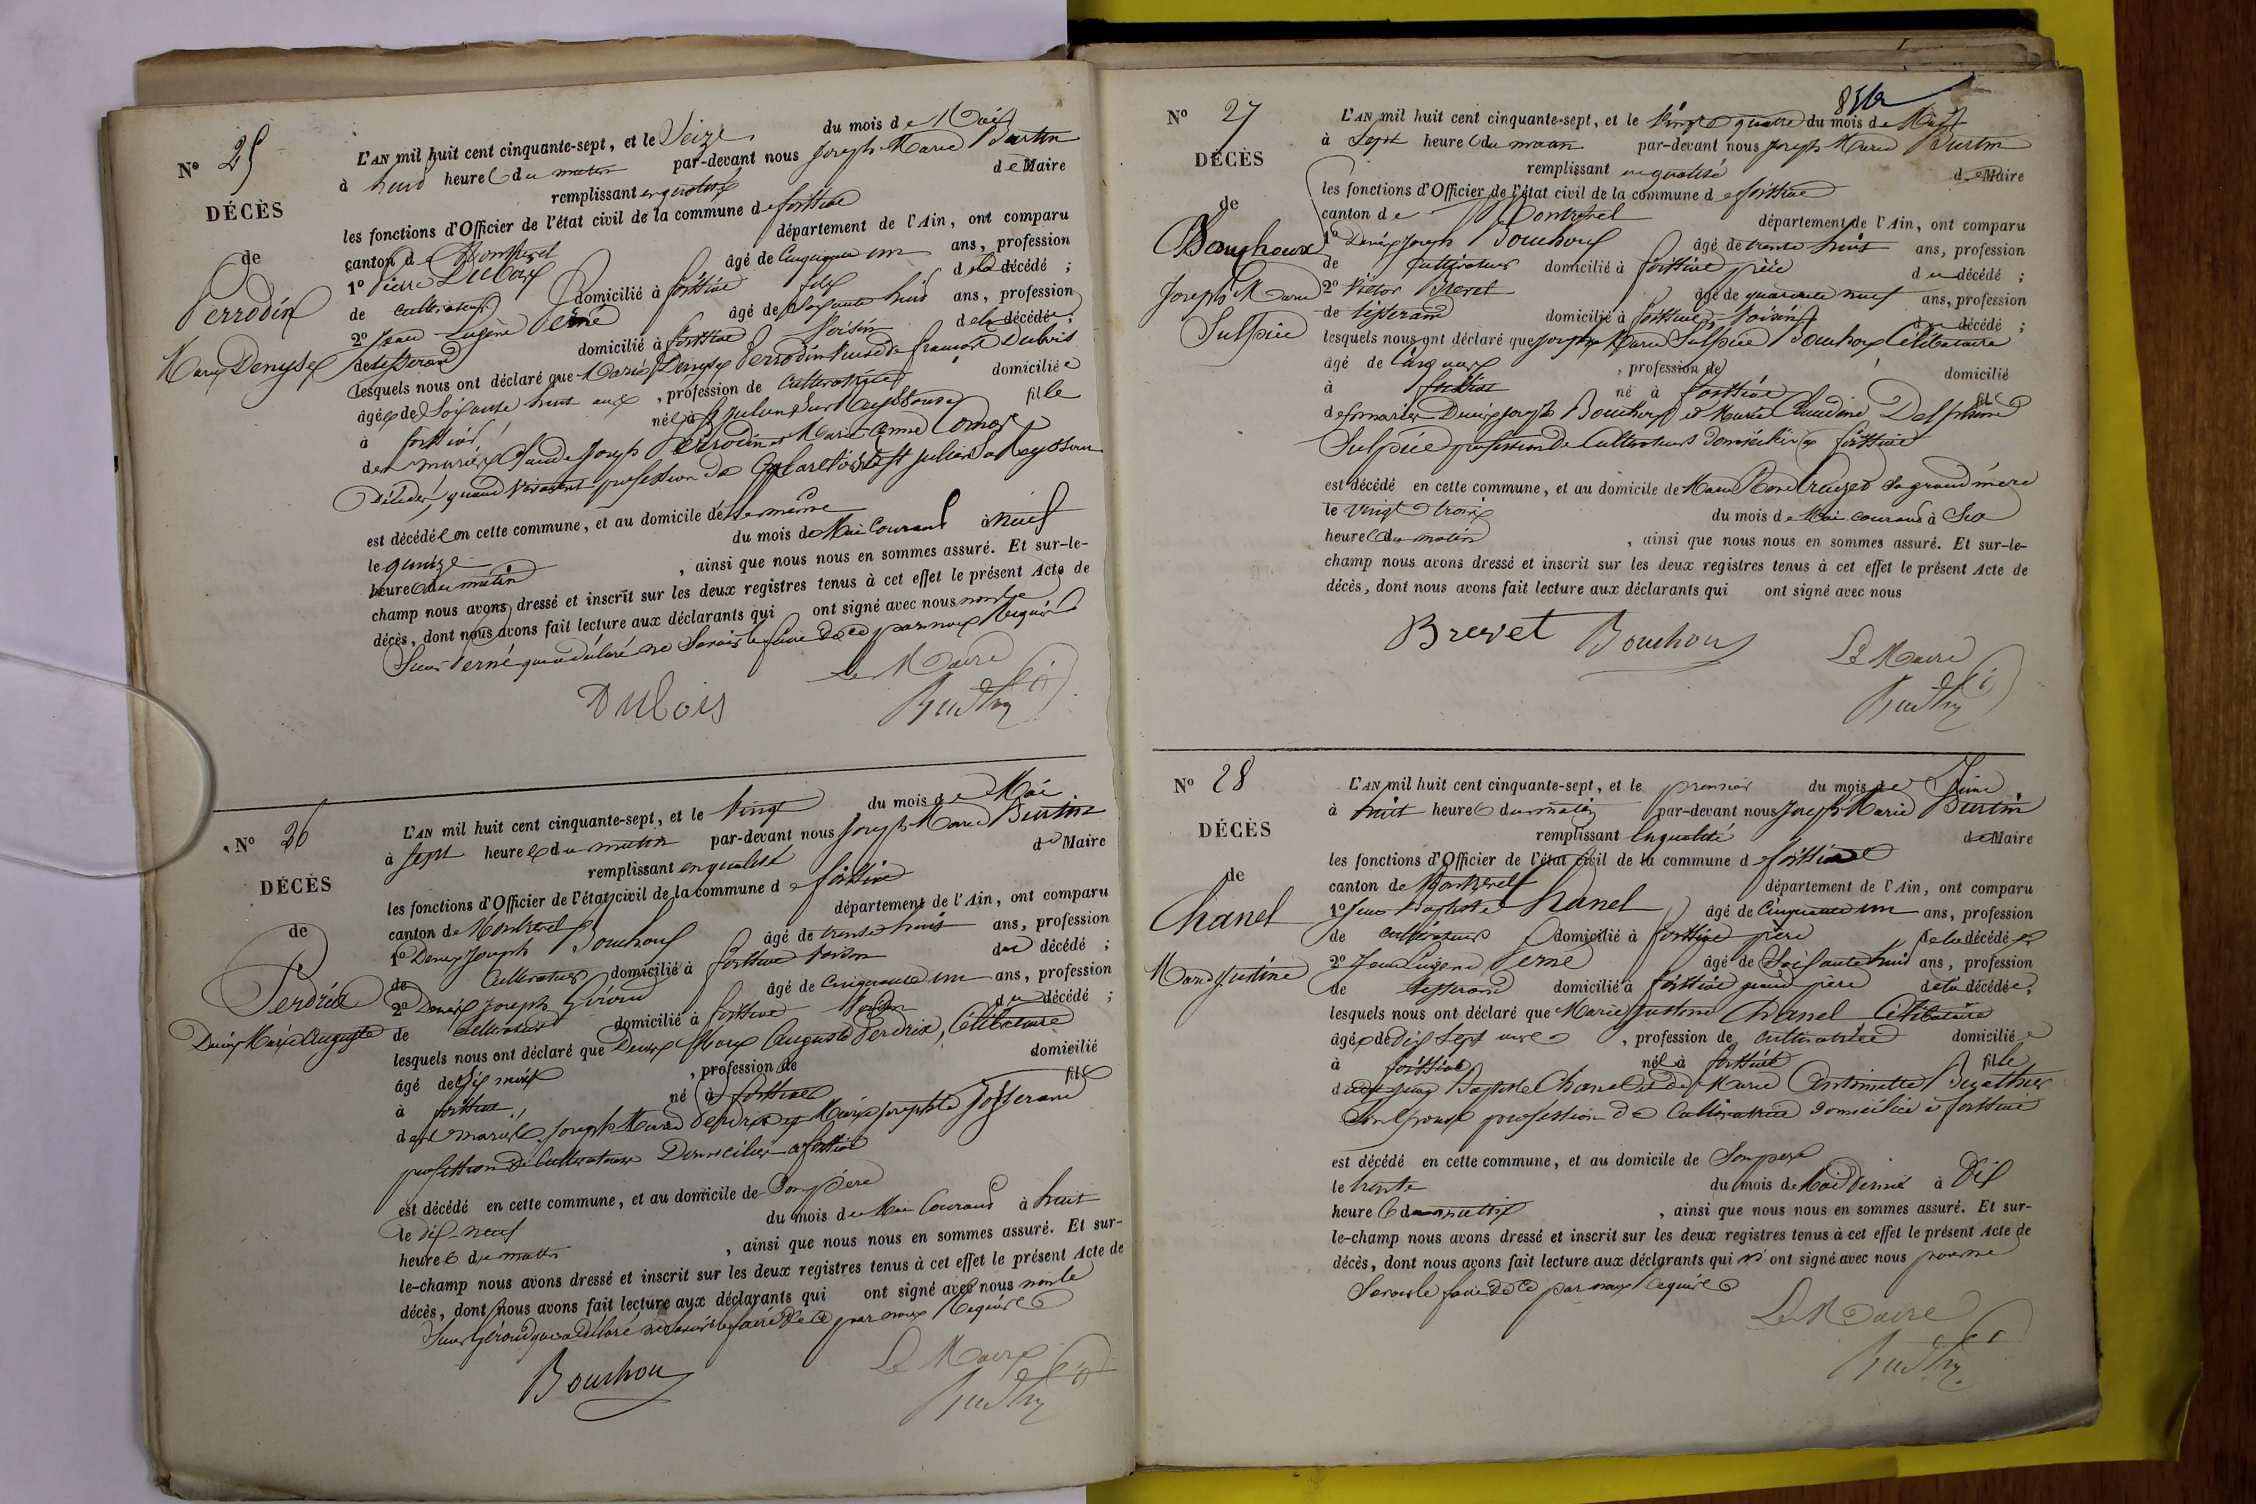 Nº 25
DÉCÈS
de
Perrodin
Marie Denyse
L'AN mil huit cent cinquante-sept, et le Seize du mois de Mai
à huit heures du matin par-devant nous Joseph Marie Burtin
remplissant en qualité de Maire
les fonctions d'Officier de l'état civil de la commune de foissiat
canton de Montrevel département de l'Ain, ont comparu
1º Pierre Dubois âgé de Cinquante un ans, profession
de cultivateur domicilié à foissiat fils de la décédée ;
2º Jean Eugène Perné âgé de Soixante huit ans, profession
de tisserand domicilié à foissiat Voisin de la décédée ;
lesquels nous ont déclaré que Marie Denyse Perrodin Veuve de françois Dubois
âgée de Soixante huit ans, profession de Cultivatrice domiciliée
à foissiat née à St Julien sur Reyssouze fille
de mariés Claude Joseph Perrodin et Marie Anne
Décédés, quand vivaient profession de à St Julien sur Reyssouze
est décédée en cette commune, et au domicile de
le quinze du mois de Mai Courant à neuf
heures du matin, ainsi que nous nous en sommes assuré. Et sur-le-
champ nous avons dressé et inscrit sur les deux registres tenus à cet effet le présent Acte de
décès, dont nous avons fait lecture aux déclarants qui ont signé avec nous non le
Sieur Perné qui a déclaré ne Savoir le faire de ce par nous Requis
Le Maire
Dubois
Nº 26
DÉCÈS
de
Perdrix
Denis Marie Auguste
L'AN mil huit cent cinquante-sept, et le Vingt du mois de Mai
à Sept heures du matin par-devant nous Joseph Marie Burtin
remplissant en qualité de Maire
les fonctions d'Officier de l'état civil de la commune de foissiat
canton de Montrevel département de l'Ain, ont comparu
1º Denis Joseph Bouchoux âgé de trente huit ans, profession
de Cultivateur domicilié à foissiat Voisin du décédé ;
2º Denis Joseph Giroud âgé de cinquante un ans, profession
de cultivateur domicilié à foissiat Voisin du décédé ;
lesquels nous ont déclaré que Denis Marie Auguste Perdrix, Célibataire
âgé de Six mois, profession de domicilié
à foissiat né à foissiat fils
de mariés Joseph Marie Perdrix et Marie Josephte Josserand
profession de Cultivateurs Domiciliés à foissiat
est décédé en cette commune, et au domicile de Son père
le dix-neuf du mois de Mai Courant à huit
heures du matin, ainsi que nous nous en sommes assuré. Et sur-
le-champ nous avons dressé et inscrit sur les deux registres tenus à cet effet le présent Acte de
décès, dont nous avons fait lecture aux déclarants qui ont signé avec nous non le
Sieur Giroud qui a déclaré ne savoir le faire de ce par nous Requis
Bouchou
Le Maire
Nº 27
DÉCÈS
de
Bouchoux
Joseph Marie
Sulpice
L'AN mil huit cent cinquante-sept, et le Vingt quatre du mois de Mai
à Sept heures du matin par-devant nous Joseph Marie Burtin
remplissant en qualité de Maire
les fonctions d'Officier de l'état civil de la commune de foissiat
canton de Montrevel département de l'Ain, ont comparu
1º Denis Joseph Bouchoux âgé de trente huit ans, profession
de Cultivateur domicilié à foissiat père du décédé ;
2º Victor Brevet âgé de quarante neuf ans, profession
de tisserand domicilié à foissiat Voisin du décédé ;
lesquels nous ont déclaré que Joseph Marie Sulpice Bouchoux Célibataire
âgé de Cinq ans, profession de domicilié
à foissiat né à foissiat fils
de mariés Denis Joseph Bouchoux et Marie Claudine Delphine
Sulpice profession de Cultivateurs domiciliés à foissiat
est décédé en cette commune, et au domicile de Marie Rose Crauzod Sa grand'mère
le vingt trois du mois de Mai courant à Six
heures du matin, ainsi que nous nous en sommes assuré. Et sur-le-
champ nous avons dressé et inscrit sur les deux registres tenus à cet effet le présent Acte de
décès, dont nous avons fait lecture aux déclarants qui ont signé avec nous
Brevet Bouchou
Le Maire
Nº 28
DÉCÈS
de
Chanel
Marie Justine
L'AN mil huit cent cinquante-sept, et le premier du mois de Juin
à huit heures du matin par-devant nous Joseph Marie Burtin
remplissant En qualité de Maire
les fonctions d'Officier de l'état civil de la commune de foissiat
canton de Montrevel département de l'Ain, ont comparu
1º Jean Baptiste Chanel âgé de Cinquante un ans, profession
de cultivateur domicilié à foissiat père de la décédée
2º Jean Eugène Perné âgé de Soixante huit ans, profession
de tisserand domicilié à foissiat grand père de la décédée ;
lesquels nous ont déclaré que Marie Justine Chanel Célibataire
âgée de Dix Sept ans, profession de cultivatrice domiciliée
à foissiat née à foissiat fille
de Jean Baptiste Chanel et de Marie Antoinette
Son Epouse profession de Cultivatrice domiciliée à foissiat
est décédé en cette commune, et au domicile de Son père
le trente du mois de Mai Dernier à Dix
heures du matin, ainsi que nous nous en sommes assuré. Et sur-
le-champ nous avons dressé et inscrit sur les deux registres tenus à cet effet le présent Acte de
décès, dont nous avons fait lecture aux déclarants qui n'ont signé avec nous pour ne
Savoir le faire de ce par nous Requis
Le Maire